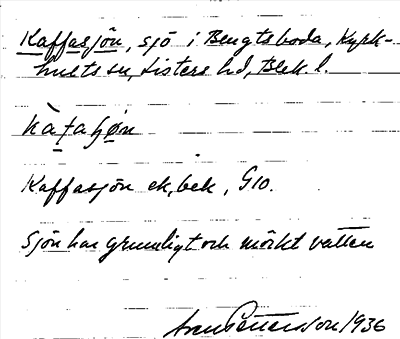 Kaffasjön, sjö i Bengtsboda, Kyrk-
hults sn, Listers hd, Blek. l.
Kaffasjön ek, bek, G10.
Sjön har grumligt och mörkt vatten
1936